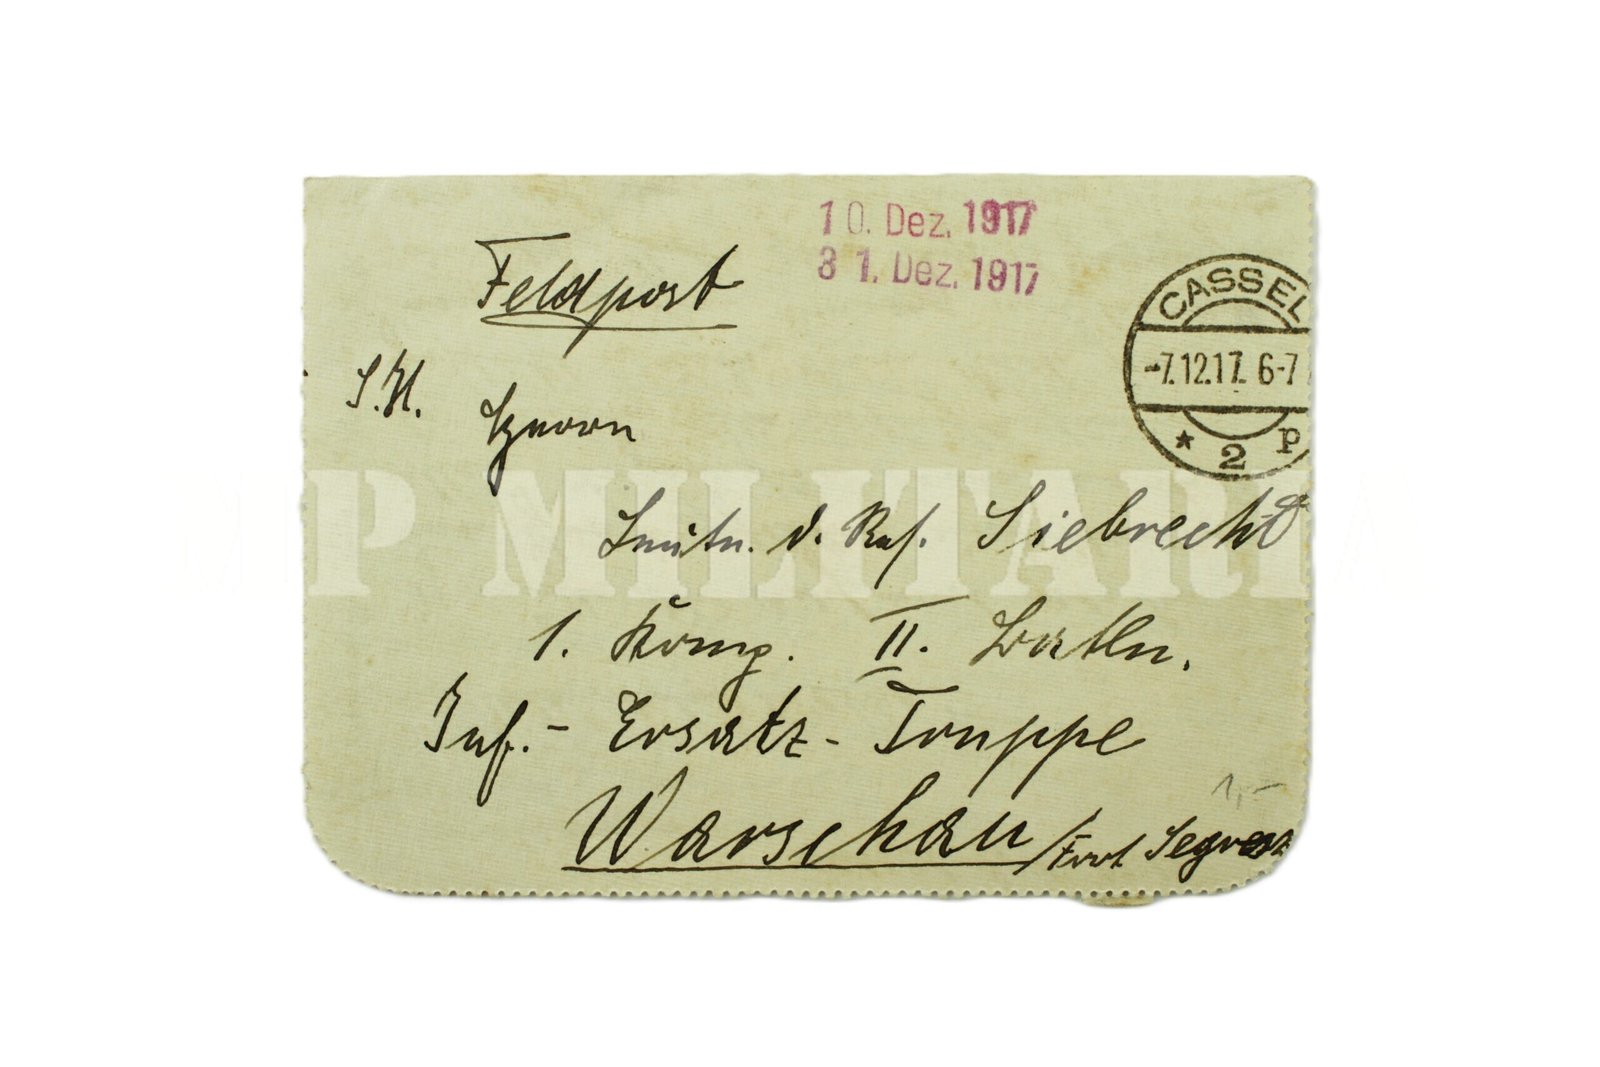 10. Dez. 1917
31. Dez. 1917
Feldpost
CASSEL
-7.12.17. 6-7
* 2 P
S.H. Herrn
Leutn. d. Res. Siebrecht
1. Komp. II. Batln.
Inf.- Ersatz- Truppe
Warschau / Fort
1,-
P MILITARIA